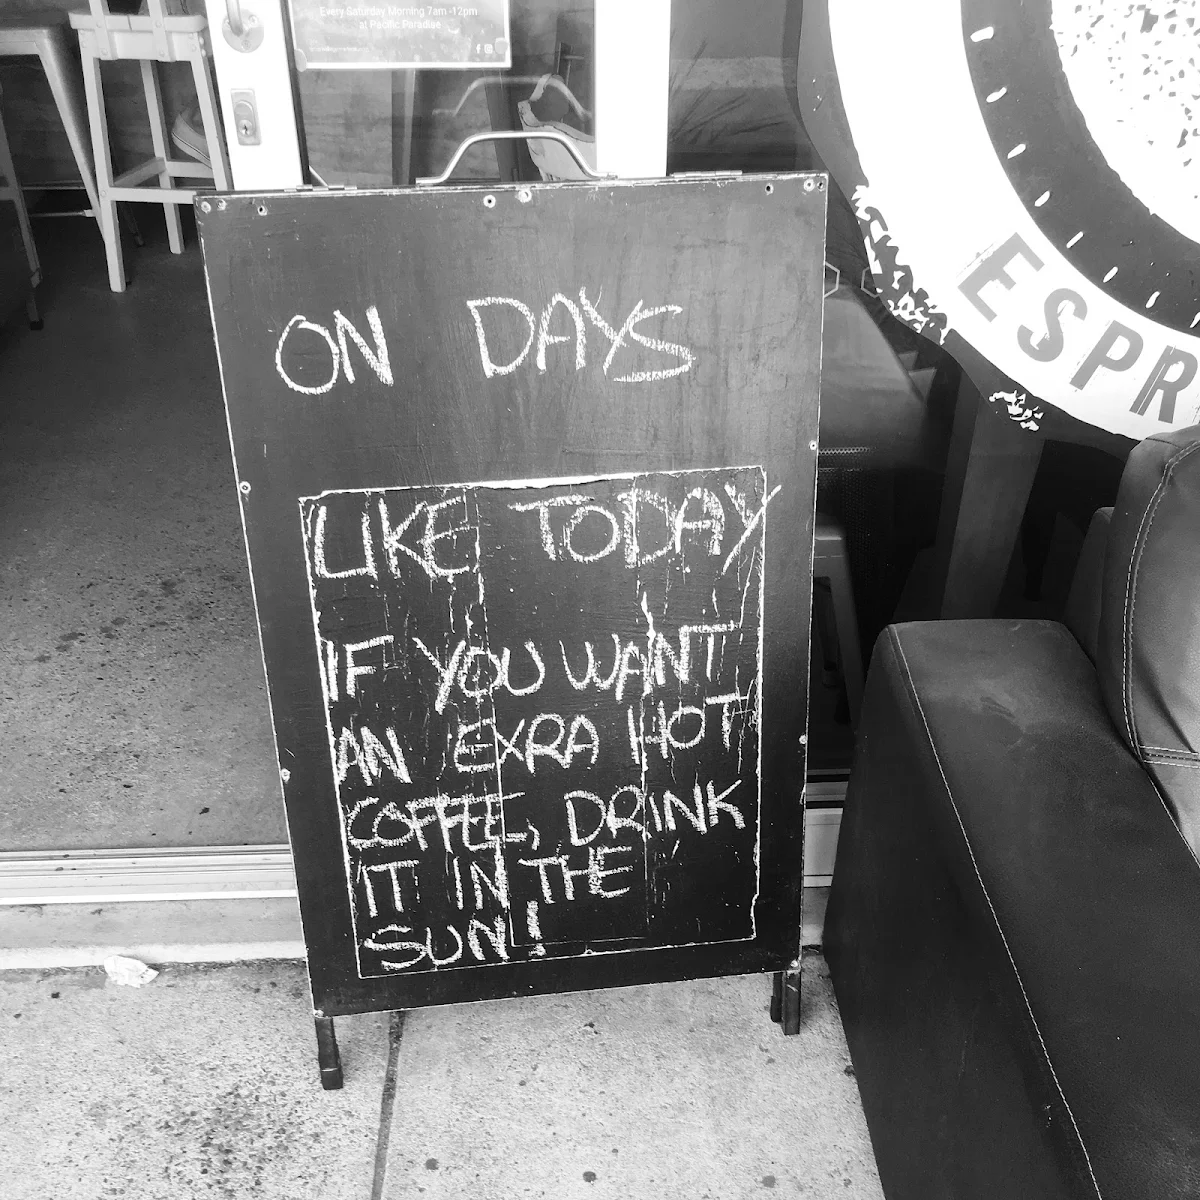 Every Saturday Morning 7am -12pm
at Pacific Paradise
ESPR
ON DAYS
LIKE TODAY
IF YOU WANT
AN EXRA HOT
COFFEE, DRINK
IT IN THE
SUN!